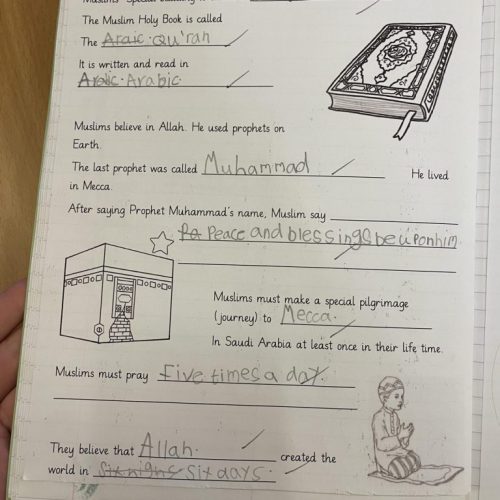 The Muslim Holy Book is called
The Araic. Qu'ran
It is written and read in
Aralic. Arabic.
Muslims believe in Allah. He used prophets on
Earth.
The last prophet was called Muhammad He lived
in Mecca.
After saying Prophet Muhammad's name, Muslim say
Pa Peace and blessings be uponhim
Muslims must make a special pilgrimage
(journey) to Mecca.
In Saudi Arabia at least once in their life time.
Muslims must pray five times a day.
They believe that Allah. created the
world in six days.